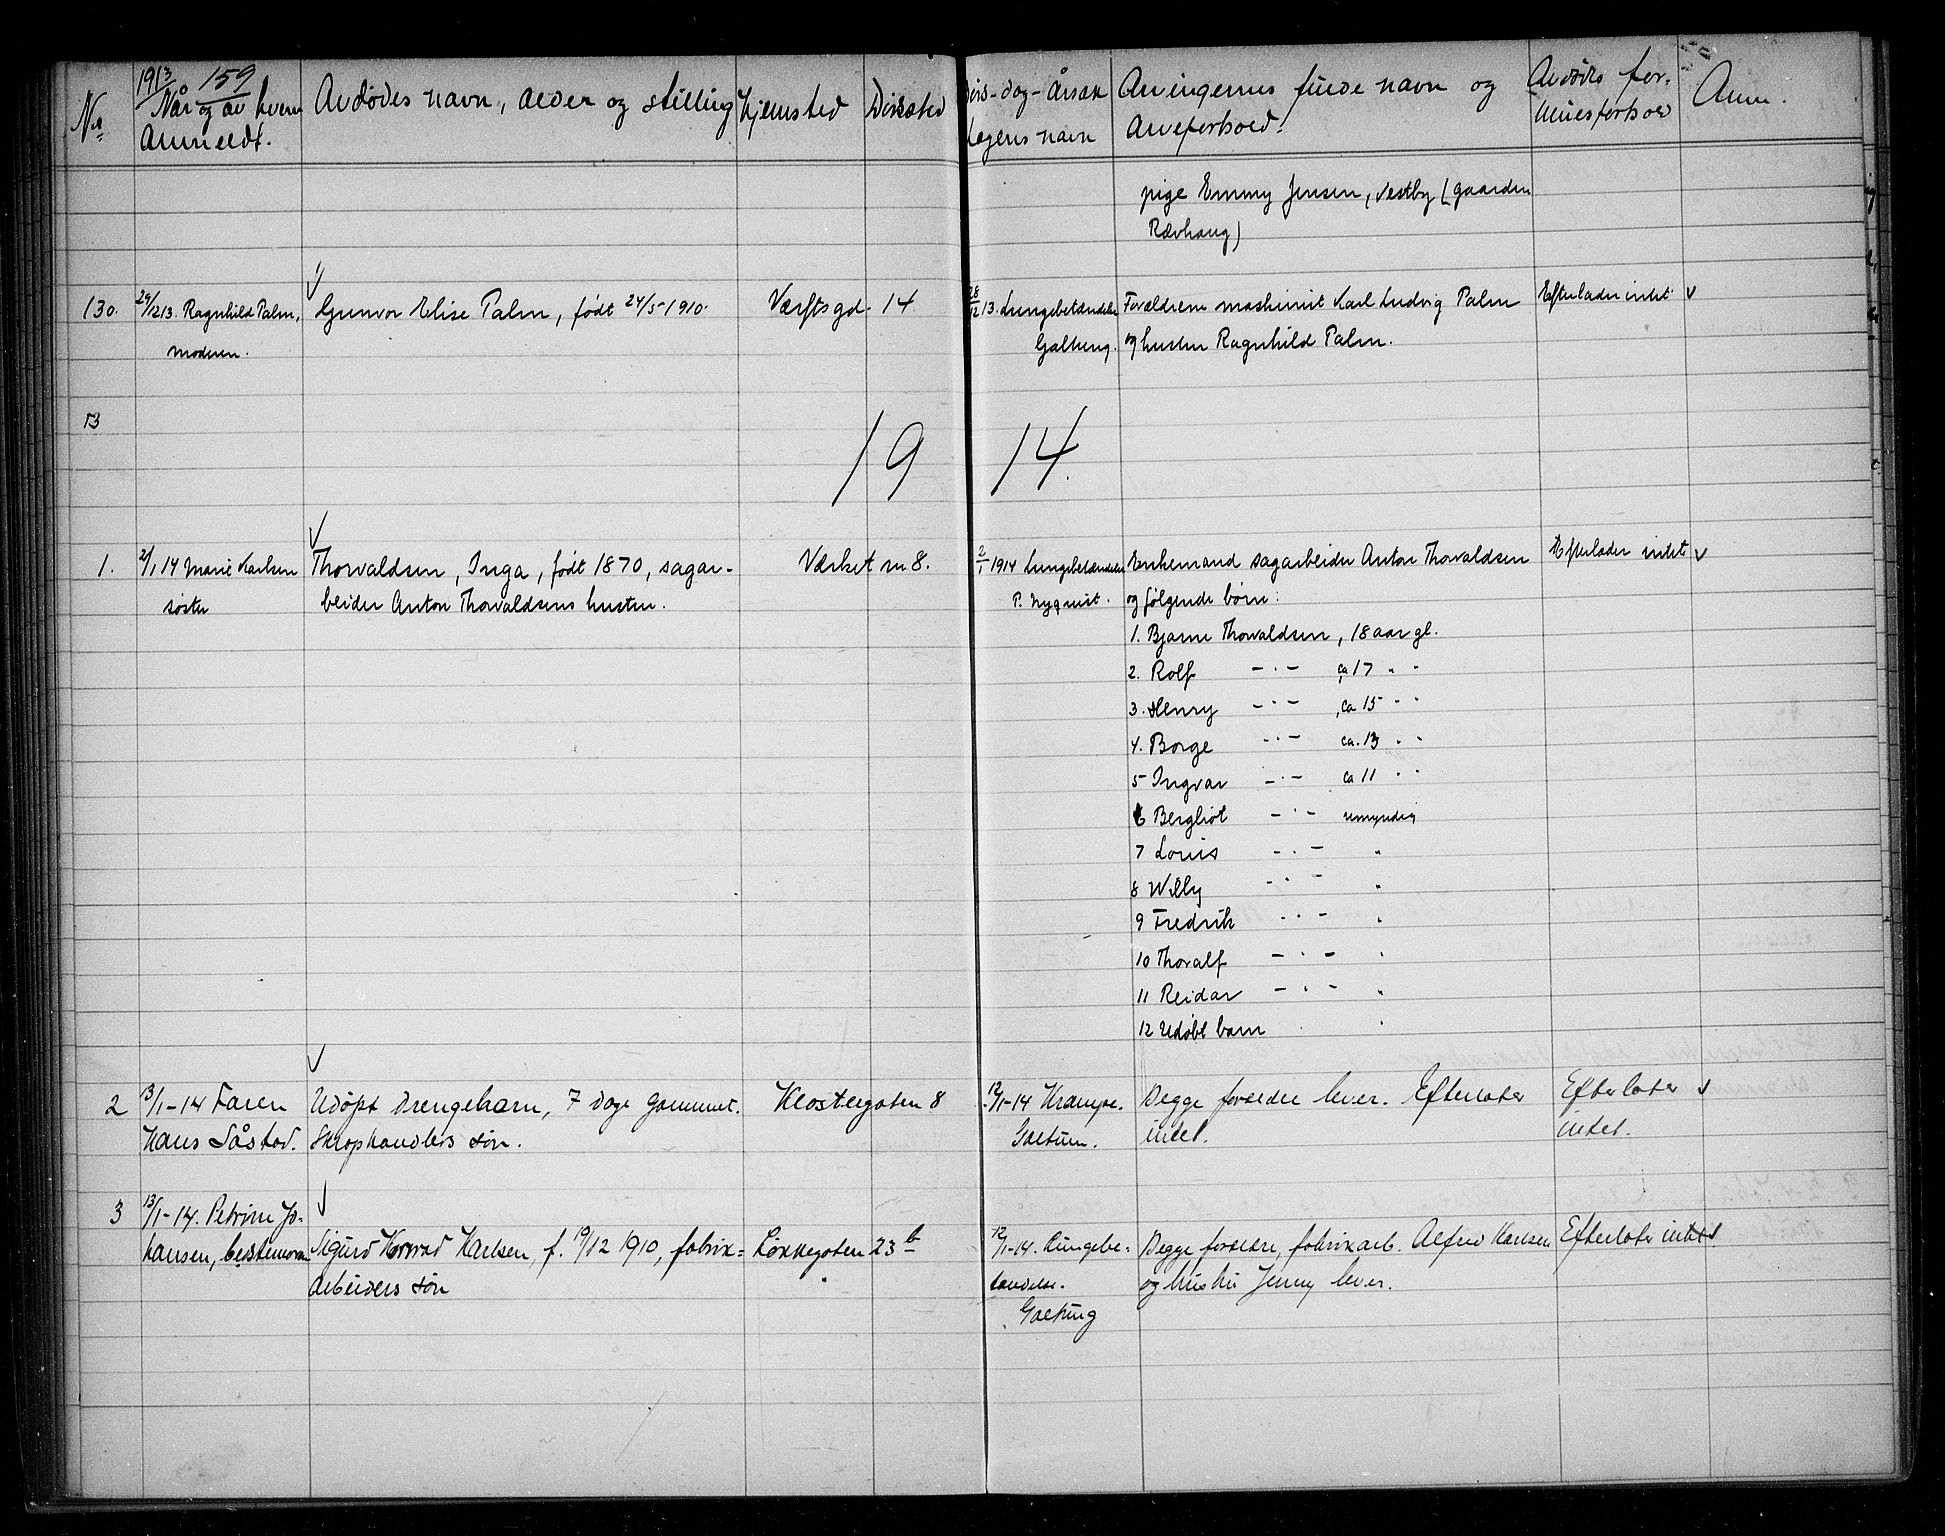 1913 159
No Når og av hvem Avdødes navn, alder og stilling Hjemsted Dødssted Døds-dag-Årsak Arvingernes fulde navn og Avdødes for- Anm.
Anmeldt. Lægens navn Arveforhold. muesforhold
pige Emmy Jensen, Vestby (gaarden
Rævhaug)
130. 29/12 13. Ragnhild Palm, Gunvor Elise Palm, født 24/5 1910. Værftsgd. 14. 28/12 13. Lungebetændelse Forældrene maskinist Karl Ludvig Palm Efterlader intet
moderen. Galtung. og hustru Ragnhild Palm.
13
19 14.
1. 2/1 14 Marie Karlsen Thorvaldsen, Inga, født 1870, sagar- Værket no 8. 2/1 1914 Lungebetændelse Enkemand sagarbeider Anton Thorvaldsen Efterlader intet
søster beider Anton Thorvaldsens hustru. P. Nyquist. og følgende børn:
1. Bjarne Thorvaldsen, 18 aar gl.
2. Rolf -·- ca 17 " "
3. Henry -·- , ca 15 " "
4. Borge -·- ca. 13 " "
5 Ingvar -·- ca 11 " "
6 Bergliot -·- umyndig
7 Louis -·- "
8 Willy -·- "
9 Fredrik -·- "
10 Thoralf -·- "
11 Reidar -·- "
12 Udøbt barn "
2 13/1-14 Faren Udøpt drengebarn, 7 dage gammel. Klostergaten 8 12/1-14 Krampe. Begge forældre lever. Efterlater Efterlater
Hans Såstad. Skrophandlers søn. Galtung. intet. intet.
3 13/1-14. Petrine Jo-
hansen, bestemoren Sigurd Konrad Karlsen f. 19/12 1910, fabrik= Løkkegaten 23 b 12/1-14. Lungebe- Begge forældre, fabrikarb. Alfred Karlsen Efterlater intet
arbeiders søn tændelse. og hustru Jenny lever.
Galtung